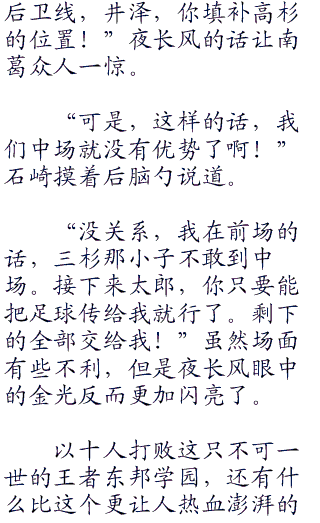 后卫线，井泽，你填补高杉
的位置！”夜长风的话让南
葛众人一惊。
“可是，这样的话，我
们中场就没有优势了啊！”
石崎摸着后脑勺说道。
“没关系，我在前场的
话，三杉那小子不敢到中
场。接下来太郎，你只要能
把足球传给我就行了。剩下
的全部交给我！”虽然场面
有些不利，但是夜长风眼中
的金光反而更加闪亮了。
以十人打败这只不可一
世的王者东邦学园，还有什
么比这个更让人热血澎湃的